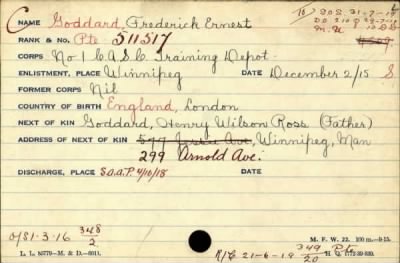 C NAME Goddard, Frederick Ernest
RANK & NO. Pte. 511517
CORPS No 1 C.A.S.C. Training Depot.
ENLISTMENT, PLACE Winnipeg DATE December 2/15 S.
FORMER CORPS Nil
COUNTRY OF BIRTH England, London
NEXT OF KIN Goddard, Henry Wilson Ross (Father)
ADDRESS OF NEXT OF KIN 577 Jessie Ave, Winnipeg, Man
299 Arnold Ave.
DISCHARGE, PLACE S.O.A.P. 4/10/18 DATE
O/S 1-3-16 348/2
M. F. W. 22. 100 m.—9-15.
L. L. 89779—M. & D.—6011.
R/C 21-6-19 349/20 Pte
H. Q. 1772-39-839.